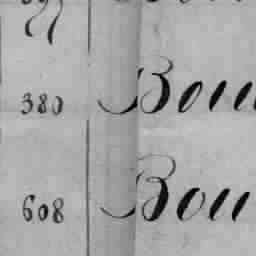 380 Bou
608 Bou